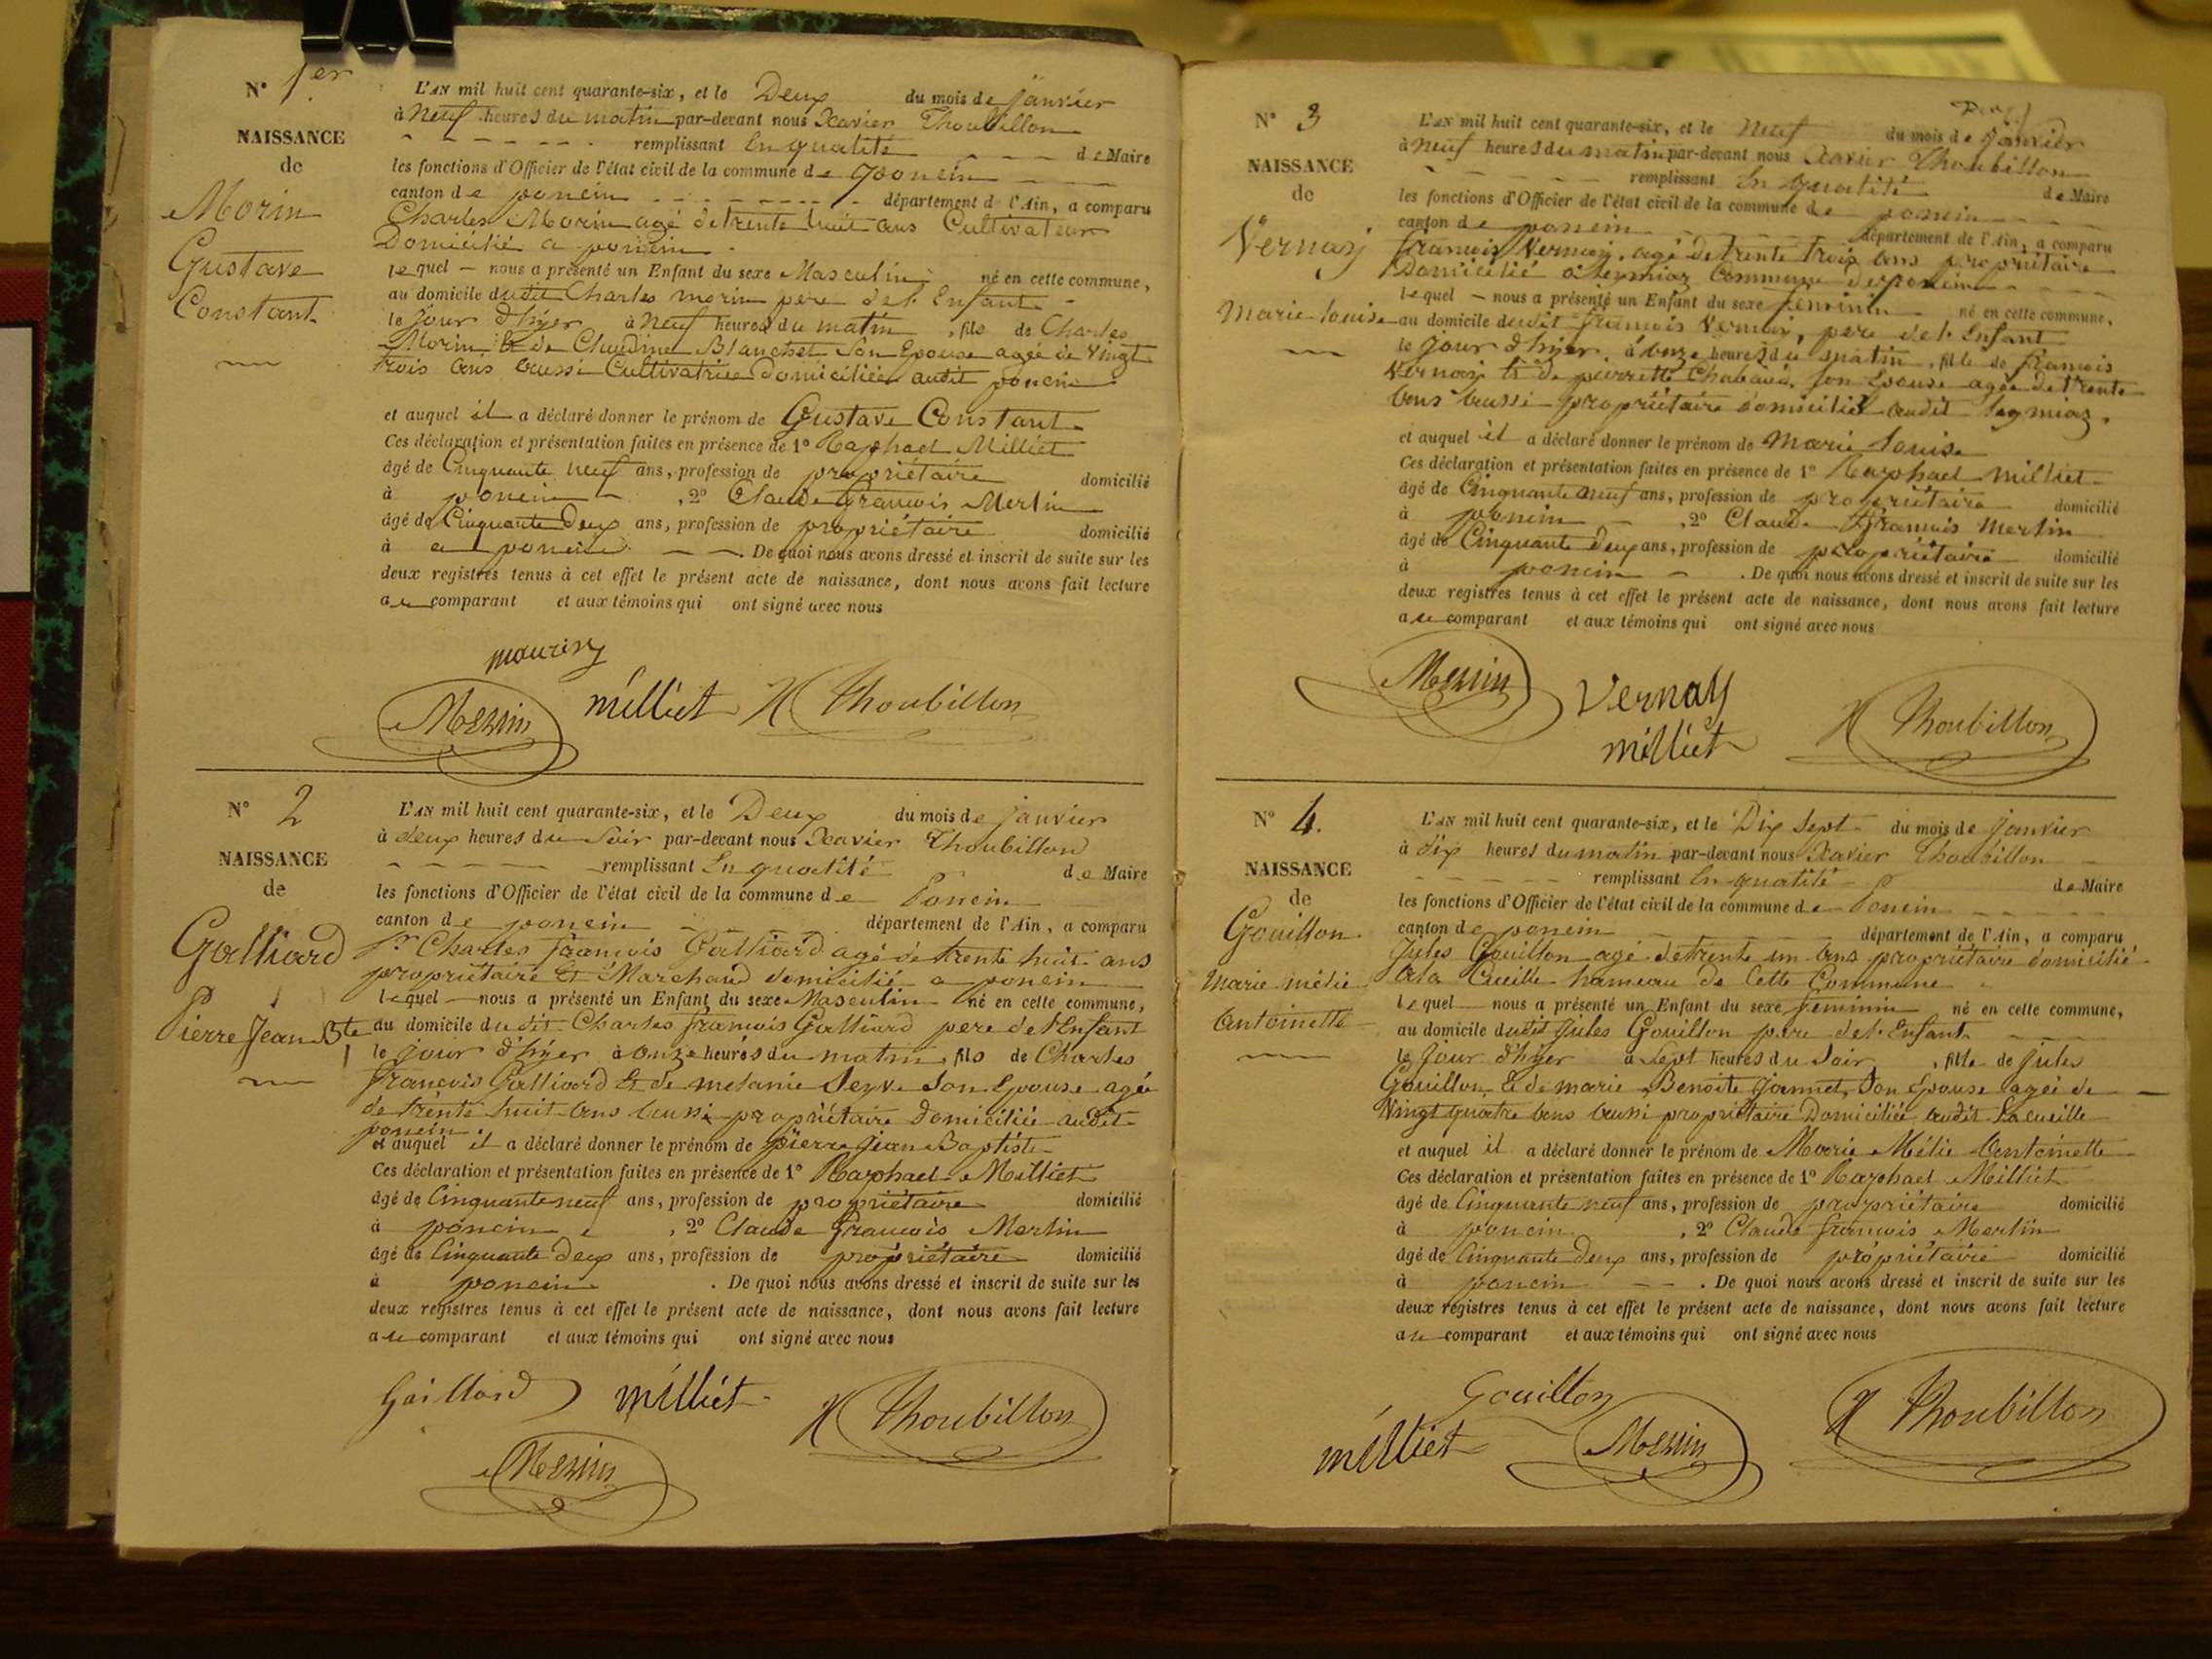 N° 1er
NAISSANCE
de
Morin
Gustave
Constant
L'AN mil huit cent quarante-six, et le Deux du mois de janvier
à Neuf heures du matin par-devant nous Xavier Thoubillon
remplissant En qualité de Maire
les fonctions d'Officier de l'état civil de la commune de poncin
canton de poncin département de l'Ain, a comparu
Charles Morin agé de trente huit ans Cultivateur
Domicilié a poncin
lequel nous a présenté un Enfant du sexe Masculin né en cette commune,
au domicile dudit Charles morin pere de l'Enfant
le jour d'hyer à Neuf heures du matin, fils de Charles
Morin Et de Claudine Blanchet Son Epouse agée de Vingt
trois ans aussi Cultivatrice domiciliée audit poncin
et auquel il a déclaré donner le prénom de Gustave Constant
Ces déclaration et présentation faites en présence de 1° Raphael Milliet
âgé de Cinquante neuf ans, profession de propriétaire domicilié
à poncin, 2° Claude françois Merlin
âgé de Cinquante Deux ans, profession de propriétaire domicilié
à a poncin. De quoi nous avons dressé et inscrit de suite sur les
deux registres tenus à cet effet le présent acte de naissance, dont nous avons fait lecture
au comparant et aux témoins qui ont signé avec nous
Merlin milliet X Thoubillon
N° 2
NAISSANCE
de
Galliard
Pierre Jean Bte
L'AN mil huit cent quarante-six, et le Deux du mois de janvier
à deux heures du Soir par-devant nous Xavier Thoubillon
remplissant En qualité de Maire
les fonctions d'Officier de l'état civil de la commune de Poncin
canton de poncin département de l'Ain, a comparu
Sr Charles françois Galliard agé de trente huit ans
propriétaire Et Marchand domicilié a poncin
lequel nous a présenté un Enfant du sexe Masculin né en cette commune,
au domicile dudit Charles françois Galliard pere de l'Enfant
le jour d'hyer à onze heures du matin, fils de Charles
françois Galliard Et de melanie Seyve Son Epouse agée
de trente huit ans aussi propriétaire Domiciliée audit
poncin
et auquel il a déclaré donner le prénom de pierre jean Baptiste
Ces déclaration et présentation faites en présence de 1° Raphael Milliet
âgé de Cinquante neuf ans, profession de propriétaire domicilié
à poncin, 2° Claude françois Merlin
âgé de Cinquante deux ans, profession de propriétaire domicilié
à poncin. De quoi nous avons dressé et inscrit de suite sur les
deux registres tenus à cet effet le présent acte de naissance, dont nous avons fait lecture
au comparant et aux témoins qui ont signé avec nous
Gaillard milliet X Thoubillon
Merlin
N° 3
NAISSANCE
de
Vernay
Marie louise
L'AN mil huit cent quarante-six, et le Neuf du mois de janvier
à neuf heures du matin par-devant nous Xavier Thoubillon
remplissant En qualité de Maire
les fonctions d'Officier de l'état civil de la commune de poncin
canton de poncin département de l'Ain, a comparu
françois Vernay, agé de trente trois ans propriétaire
Domicilié a leymiaz Commune de poncin
lequel nous a présenté un Enfant du sexe feminin né en cette commune,
au domicile dudit françois Vernay, pere de l'Enfant
le jour d'hyer, à onze heures du matin, fille de françois
Vernay Et de pierrette Chabaud, Son Epouse agée de trente
ans aussi propriétaire domiciliée audit leymiaz.
et auquel il a déclaré donner le prénom de Marie louise
Ces déclaration et présentation faites en présence de 1° Raphael milliet
âgé de Cinquante neuf ans, profession de propriétaire domicilié
à poncin, 2° Claude françois Merlin
âgé de Cinquante deux ans, profession de propriétaire domicilié
à poncin. De quoi nous avons dressé et inscrit de suite sur les
deux registres tenus à cet effet le présent acte de naissance, dont nous avons fait lecture
au comparant et aux témoins qui ont signé avec nous
Merlin Vernay X Thoubillon
milliet
N° 4.
NAISSANCE
de
Gouillon
Marie mélie
Antoinette
L'AN mil huit cent quarante-six, et le Dix Sept du mois de janvier
à dix heures du matin par-devant nous Xavier Thoubillon
remplissant En qualité de Maire
les fonctions d'Officier de l'état civil de la commune de Poncin
canton de poncin département de l'Ain, a comparu
Jules Gouillon agé de trente un ans propriétaire domicilié
a la Cueille hameau de Cette Commune
lequel nous a présenté un Enfant du sexe feminin né en cette commune,
au domicile dudit Jules Gouillon pere de l'Enfant
le jour d'hyer à Sept heures du Soir, fille de jules
Gouillon, Et de marie Benoite Jannet, Son Epouse agée de
Vingt quatre ans aussi propriétaire Domiciliée audit La cueille
et auquel il a déclaré donner le prénom de Marie Mélie Antoinette
Ces déclaration et présentation faites en présence de 1° Raphael Milliet
âgé de Cinquante neuf ans, profession de propriétaire domicilié
à poncin, 2° Claude françois Merlin
âgé de Cinquante deux ans, profession de propriétaire domicilié
à poncin. De quoi nous avons dressé et inscrit de suite sur les
deux registres tenus à cet effet le présent acte de naissance, dont nous avons fait lecture
au comparant et aux témoins qui ont signé avec nous
Gouillon
milliet Merlin X Thoubillon